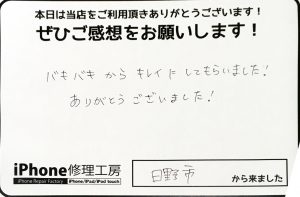 本日は当店をご利用頂きありがとうございます!
ぜひご感想をお願いします!
バキバキ から キレイ に してもらいました!
ありがとうございました!
iPhone修理工房
iPhone Repair Factory iPhone/iPad/iPod touch
日野市 から来ました